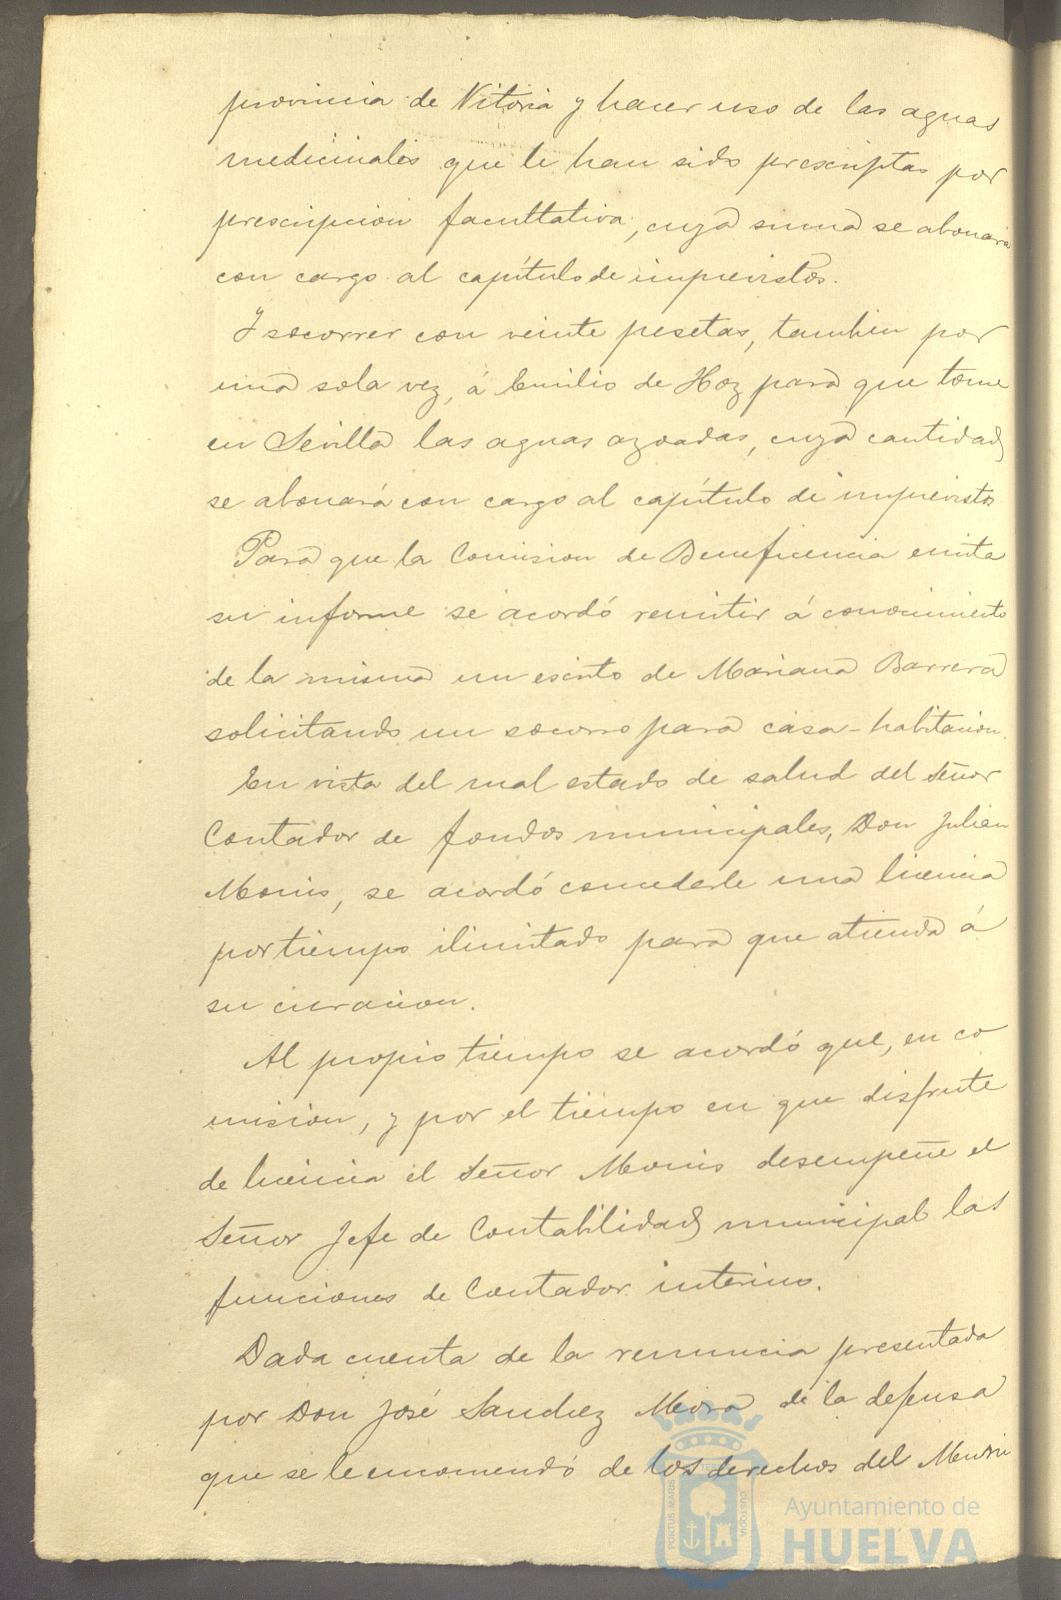 provincia de Vitoria y hacer uso de las aguas
medicinales que le han sido prescriptas por
prescripcion facultativa, cuya suma se abonará
con cargo al capítulo de imprevistos.
Y socorrer con veinte pesetas, tambien por
una sola vez, á Emilio de Hoz para que tome
en Sevilla las aguas azoadas, cuya cantidad
se abonará con cargo al capítulo de imprevistos
Para que la Comision de Beneficencia emita
su informe se acordó remitir á conocimiento
de la misma un escrito de Mariana Barrera
solicitando un socorro para casa-habitacion.
En vista del mal estado de salud del Señor
Contador de fondos municipales, Don Julian
Monis, se acordó concederle una licencia
por tiempo ilimitado para que atienda á
su curacion.
Al propio tiempo se acordó que, en co
mision, y por el tiempo en que disfrute
de licencia el Señor Monis desempeñe el
Señor Jefe de Contabilidad municipal las
funciones de Contador interino.
Dada cuenta de la renuncia presentada
por Don José Sanchez Mora de la defensa
que se le encomendó de los derechos del Muni
PORTUS MARIS ET TERRE CUSTODIA
Ayuntamiento de
HUELVA